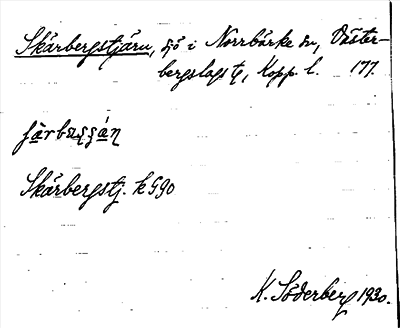 Skärbergstjärn, sjö i Norrbärke sn, Väster-
bergslags tg, Kopp. l. 177.
Skärbergstj. k 590
K. Söderberg 1930.